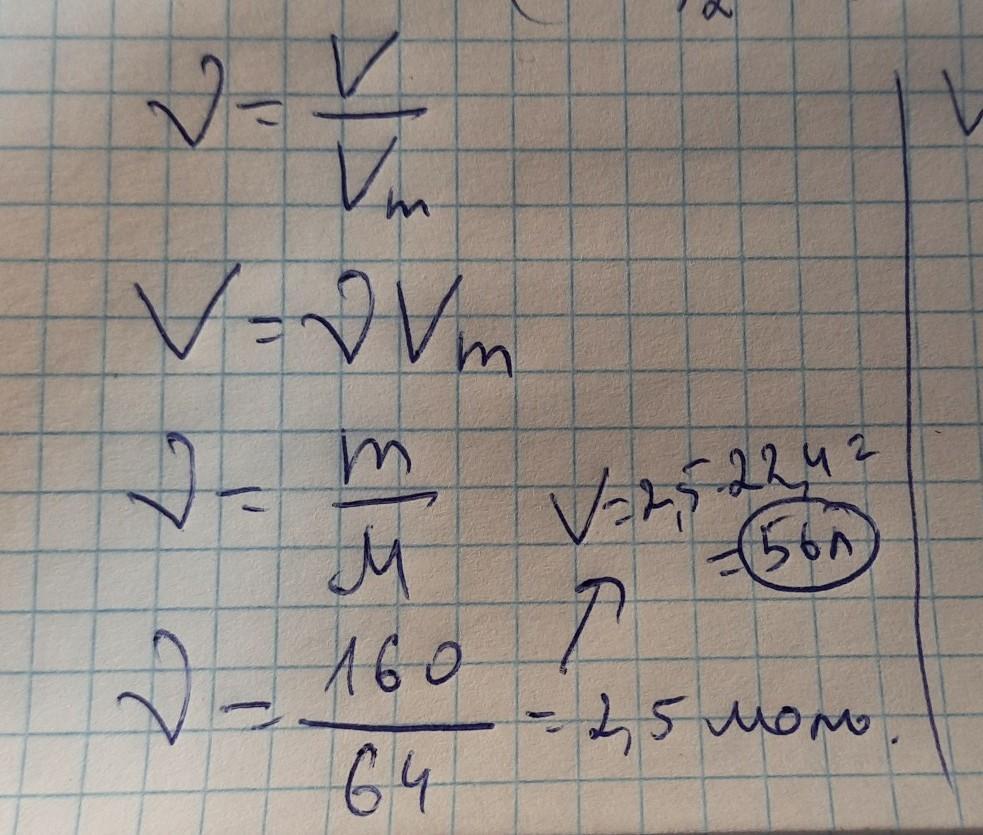 2
ν = V / Vm
V
V = νVm
ν = m / M
V = 2,5 · 22,4 =
= 56л
ν = 160 / 64 = 2,5 моль.